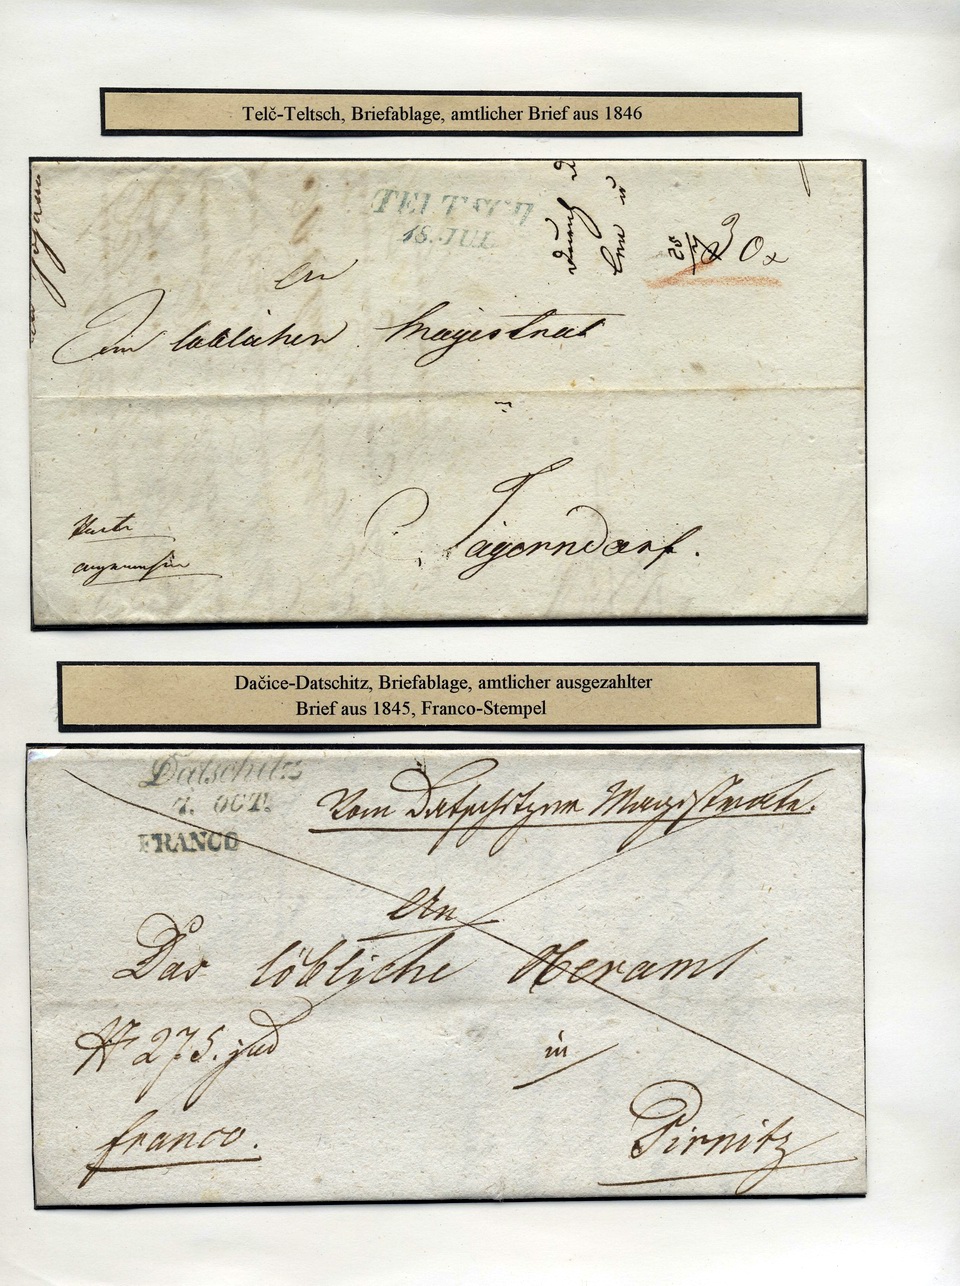 Telč-Teltsch, Briefablage, amtlicher Brief aus 1846
TELTSCH
18. JUL
30x
25/7
An
löblichen Magistrat
Jägerndorf.
Dačice-Datschitz, Briefablage, amtlicher ausgezahlter
Brief aus 1845, Franco-Stempel
Datschitz
7. OCT.
FRANCO
Vom Datschitzer Magistrate.
An
Das löbliche Oberamt
N 275. jud
in
franco.
Pirnitz